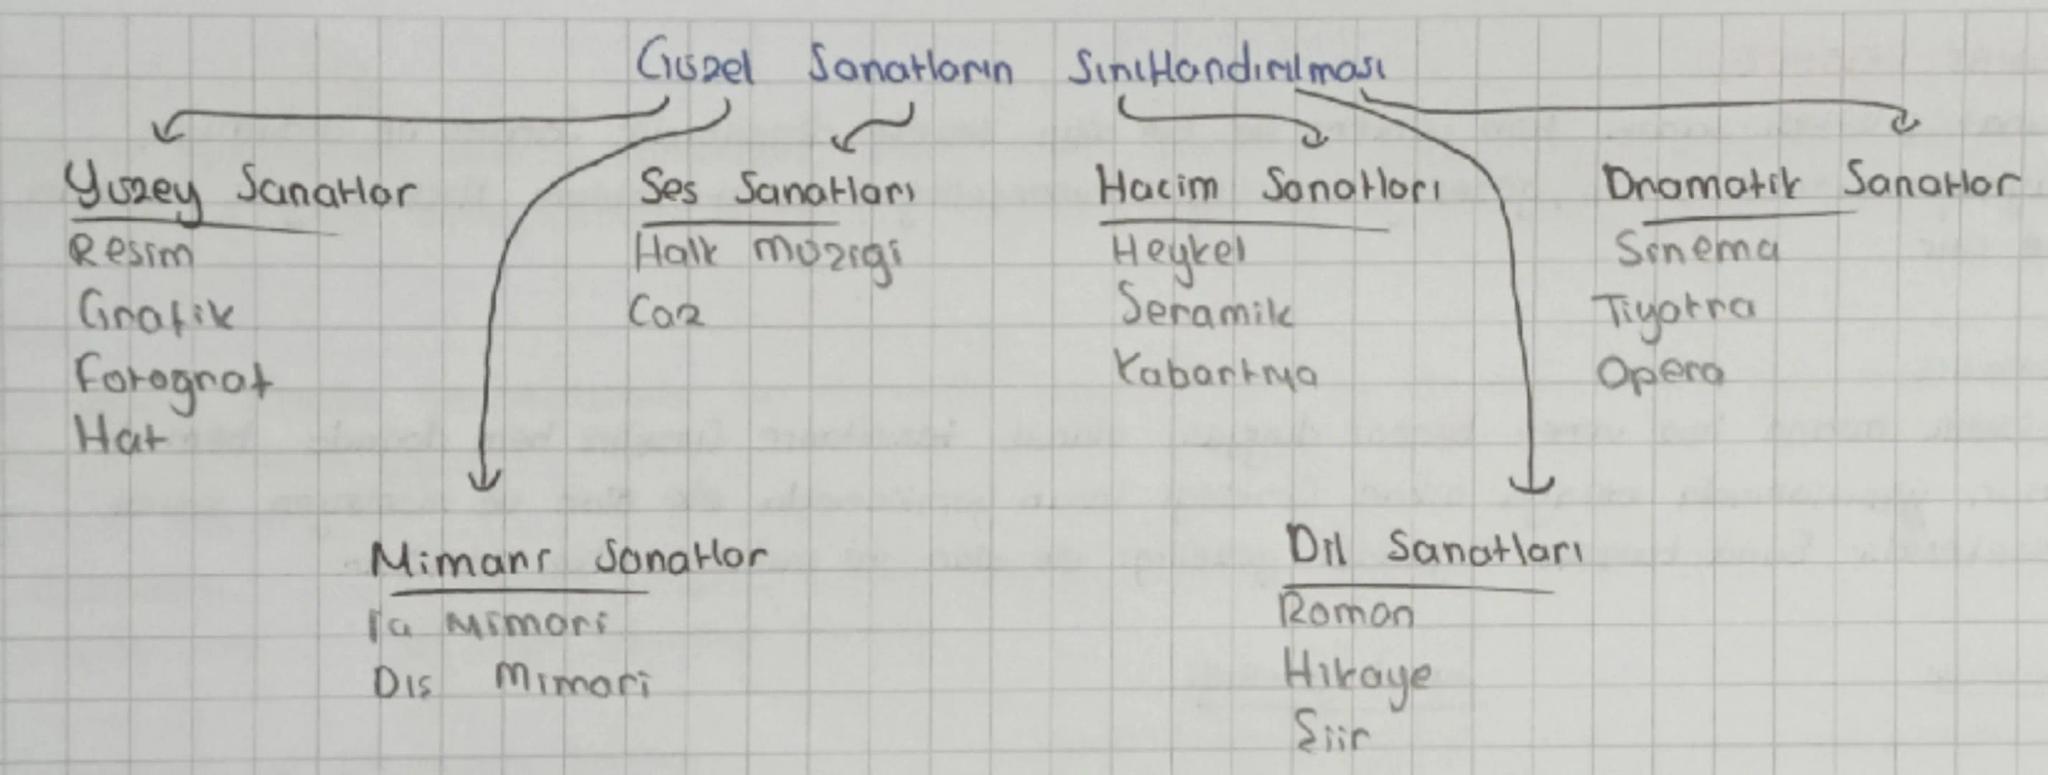 Güzel Sanatların Sınıflandırılması
Yüzey Sanatlar
Resim
Grafik
Fotograf
Hat
Ses Sanatları
Halk müzigi
Caz
Hacim Sanatları
Heykel
Seramik
Kabartma
Dramatik Sanatlar
Sinema
Tiyatra
Opera
Mimari Sanatlar
İç Mimari
Dıs Mimari
Dil Sanatları
Roman
Hikaye
Şiir